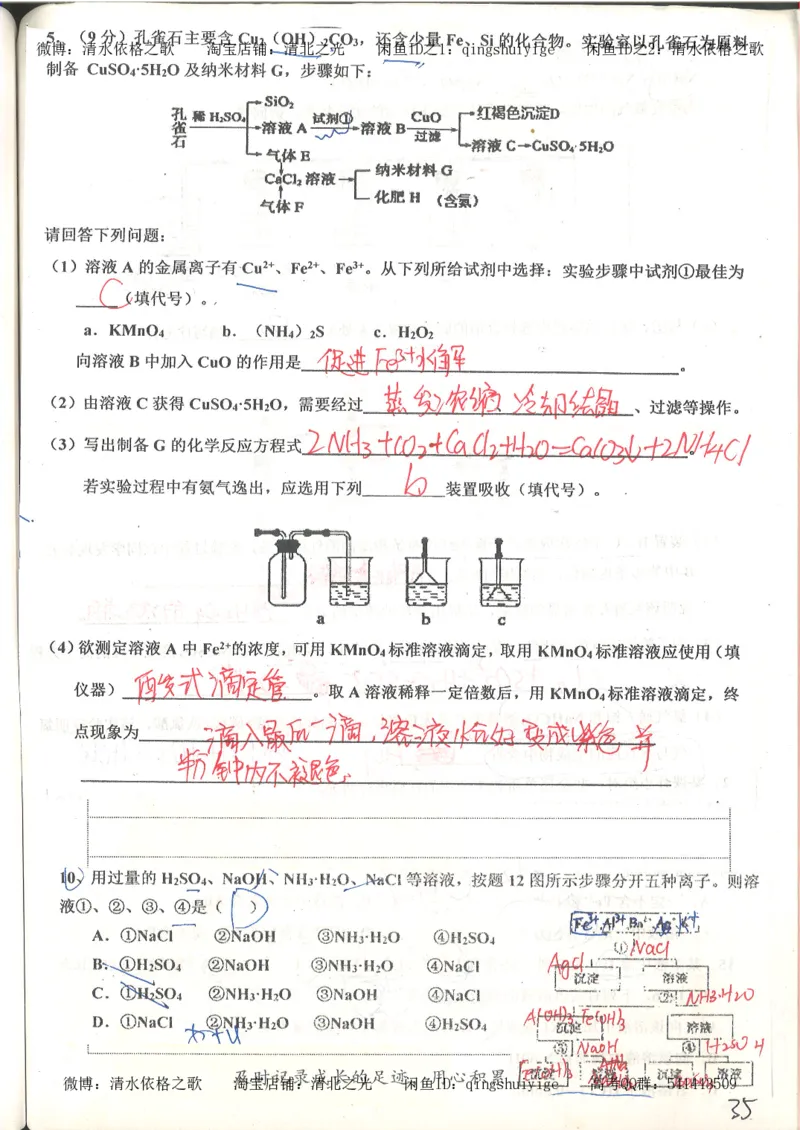 5、（9 分）孔雀石主要含 Cu₂（OH）₂CO₃，还含少量 Fe、Si 的化合物。实验室以孔雀石为原料
微博：清水依格之歌 淘宝店铺：清北之光 闲鱼ID之1：qingshuiyige 闲鱼ID之2：清水依格之歌
制备 CuSO₄·5H₂O 及纳米材料 G，步骤如下：
孔雀石 稀 H₂SO₄ SiO₂
溶液 A 试剂① 溶液 B CuO 过滤 红褐色沉淀D
溶液 C→CuSO₄·5H₂O
气体 E
CaCl₂ 溶液 纳米材料 G
化肥 H （含氮）
气体 F
请回答下列问题：
（1）溶液 A 的金属离子有 Cu²⁺、Fe²⁺、Fe³⁺。从下列所给试剂中选择：实验步骤中试剂①最佳为
C（填代号）。
a．KMnO₄ b．（NH₄）₂S c．H₂O₂
向溶液 B 中加入 CuO 的作用是 促进Fe³⁺水解 。
（2）由溶液 C 获得 CuSO₄·5H₂O，需要经过 蒸发浓缩 冷却结晶 、过滤等操作。
（3）写出制备 G 的化学反应方程式 2NH₃+CO₂+CaCl₂+H₂O=CaCO₃↓+2NH₄Cl
若实验过程中有氨气逸出，应选用下列 b 装置吸收（填代号）。
a b c
（4）欲测定溶液 A 中 Fe²⁺的浓度，可用 KMnO₄ 标准溶液滴定，取用 KMnO₄ 标准溶液应使用（填
仪器） 酸式滴定管 。取 A 溶液稀释一定倍数后，用 KMnO₄ 标准溶液滴定，终
点现象为 滴入最后一滴，溶液恰好变成紫色 并
半分钟内不褪色.
10、用过量的 H₂SO₄、NaOH、NH₃·H₂O、NaCl 等溶液，按题 12 图所示步骤分开五种离子。则溶
液①、②、③、④是（ D ）
A．①NaCl ②NaOH ③NH₃·H₂O ④H₂SO₄
B．①H₂SO₄ ②NaOH ③NH₃·H₂O ④NaCl
C．①H₂SO₄ ②NH₃·H₂O ③NaOH ④NaCl
D．①NaCl ②NH₃·H₂O ③NaOH ④H₂SO₄
Fe³⁺ Al³⁺ Ba²⁺ Ag⁺ K⁺
① NaCl
AgCl 沉淀 溶液
② NH₃·H₂O
Al(OH)₃ Fe(OH)₃ 沉淀 溶液
③ NaOH ④ H₂SO₄
Fe(OH)₃ 沉淀 溶液
及时记录成长的足迹 用心积累
微博：清水依格之歌 淘宝店铺：清北之光 闲鱼ID：qingshuiyige 高考QQ群：541443509
35